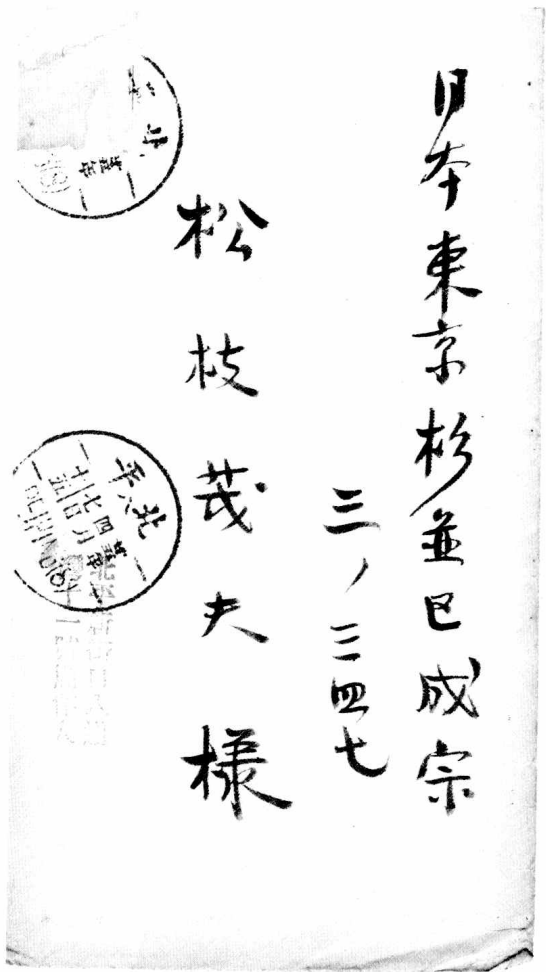 日本東京杉並区成宗
三ノ三四七
松枝茂夫様
北平